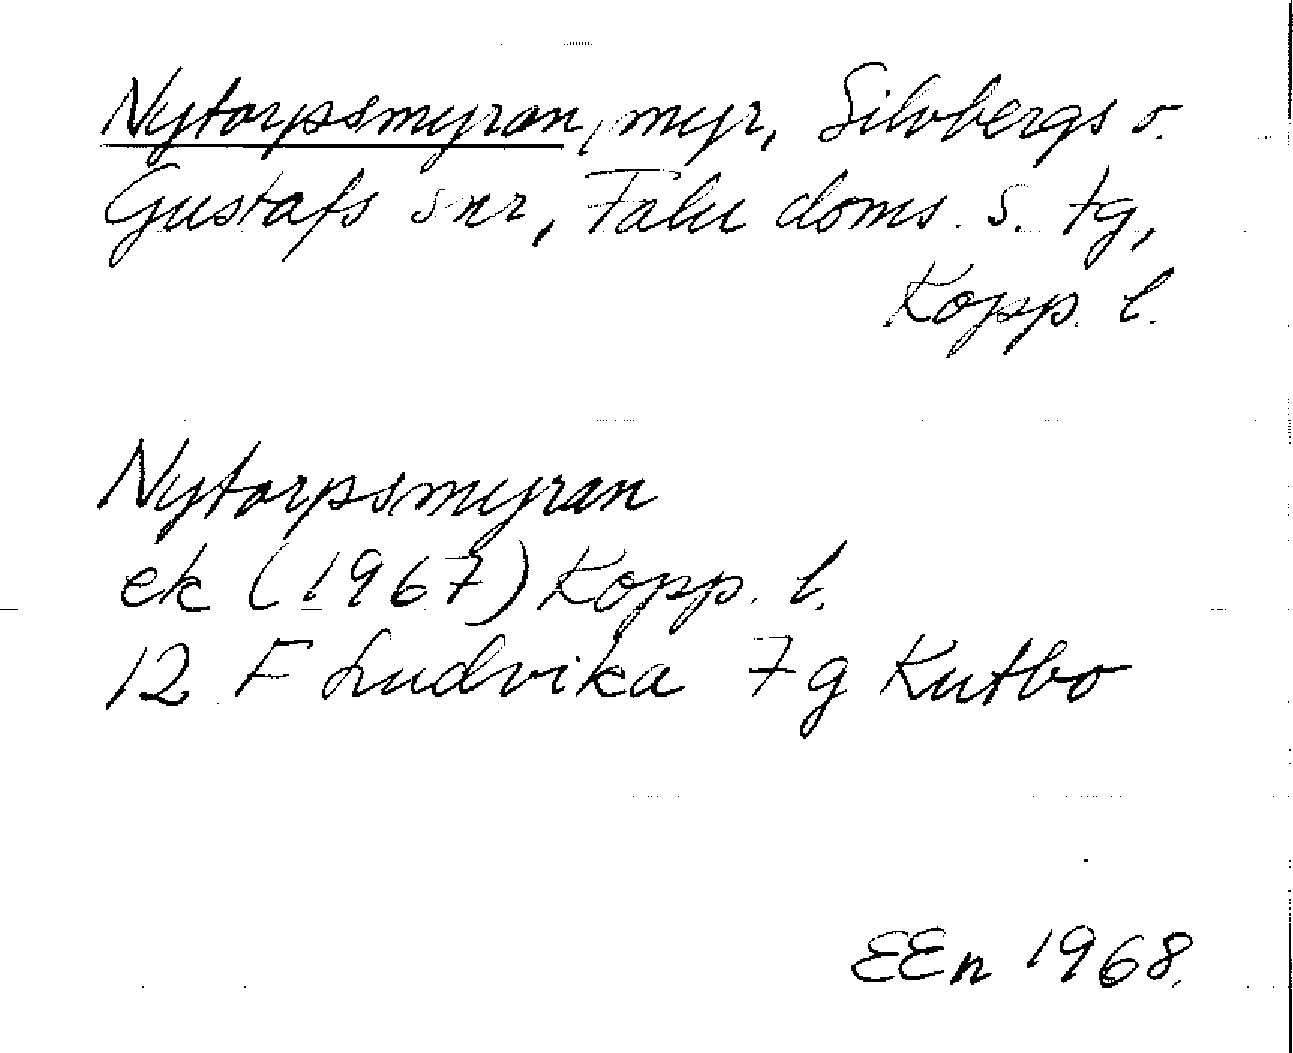 Nytorpsmyran, myr, Silvbergs o.
Gustafs snr, Falu doms. s. tg,
Kopp. l.
Nytorpsmyran
ek (1967) Kopp. l.
12 F Ludvika 7g Kutbo
EEn 1968.